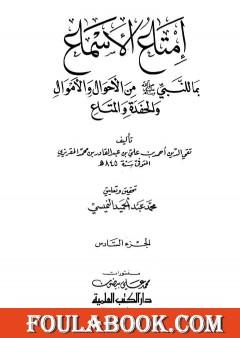 إمتاع الأسماع
بما للنبي ﷺ من الأحوال والأموال
والحفدة والمتاع
تأليف
تقي الدين أحمد بن علي بن عبد القادر بن محمد المقريزي
المتوفى سنة ٨٤٥ هـ
تحقيق وتعليق
محمد عبد الحميد النميسي
الجزء السادس
منشورات
محمد علي بيضون
دار الكتب العلمية
FOULABOOK.COM